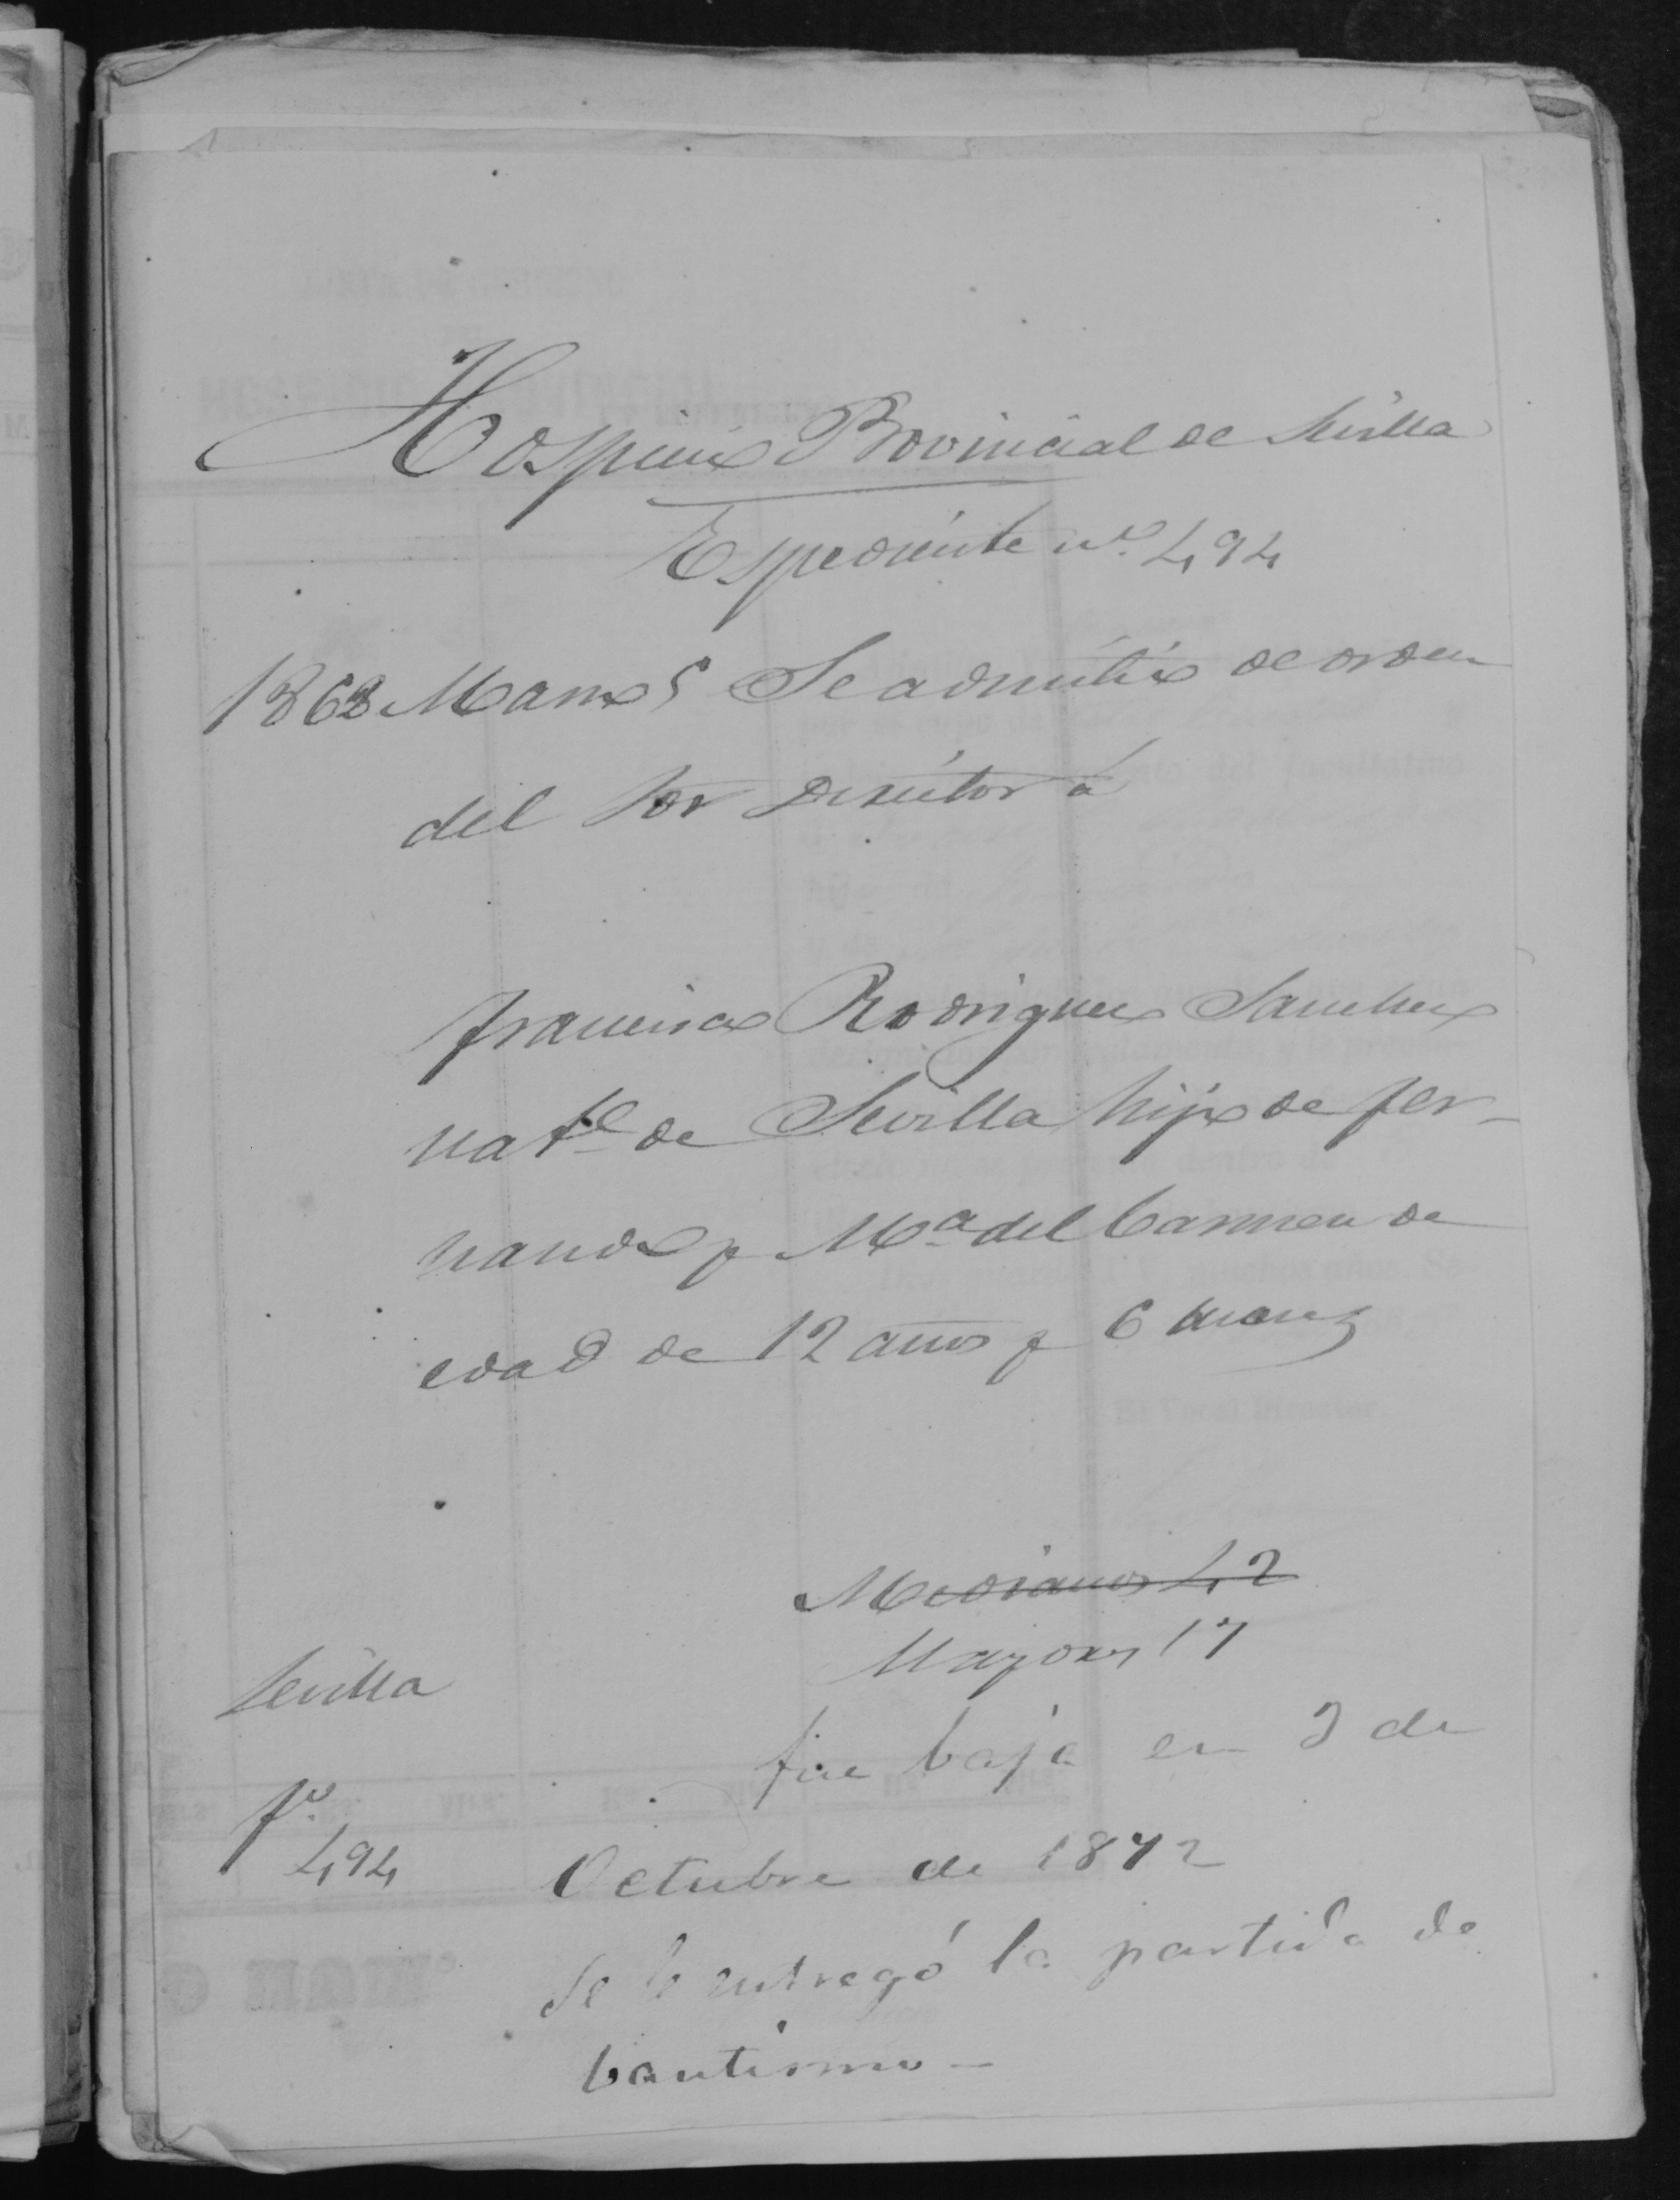 Hospicio Provincial de Sevilla
Espediente nº. 494
1868 Marzo 5 Se admitió de orden
del Sor Director á
Francisco Rodriguez Sanchez
natl de Sevilla hijo de Fer-
nando y Mª del Carmen de
edad de 12 años y 6 meses
Medianos 42
Mayores 17
Sevilla
fue baja en 3 de
Fº.
494
Octubre de 1872
Se le entregó la partida de
bautismo -